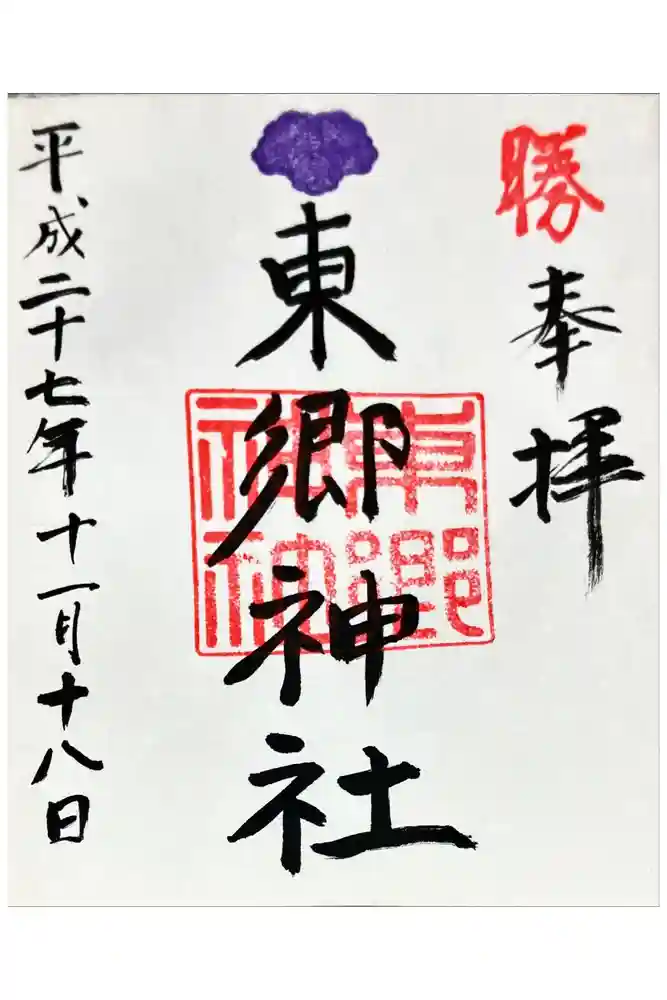 勝
奉拝
東郷神社
東郷神社
平成二十七年十一月十八日